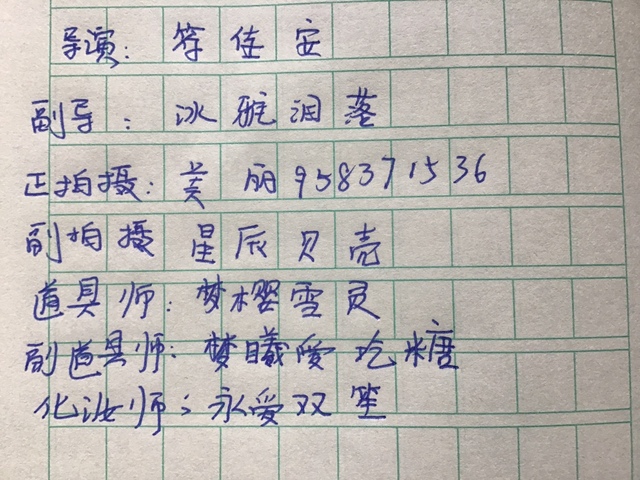 导演：符佳安
副导：冰雅泪落
正拍摄：美丽958371536
副拍摄 星辰贝壳
道具师：梦樱雪灵
副道具师：梦曦愛吃糖
化妆师：永爱双笙